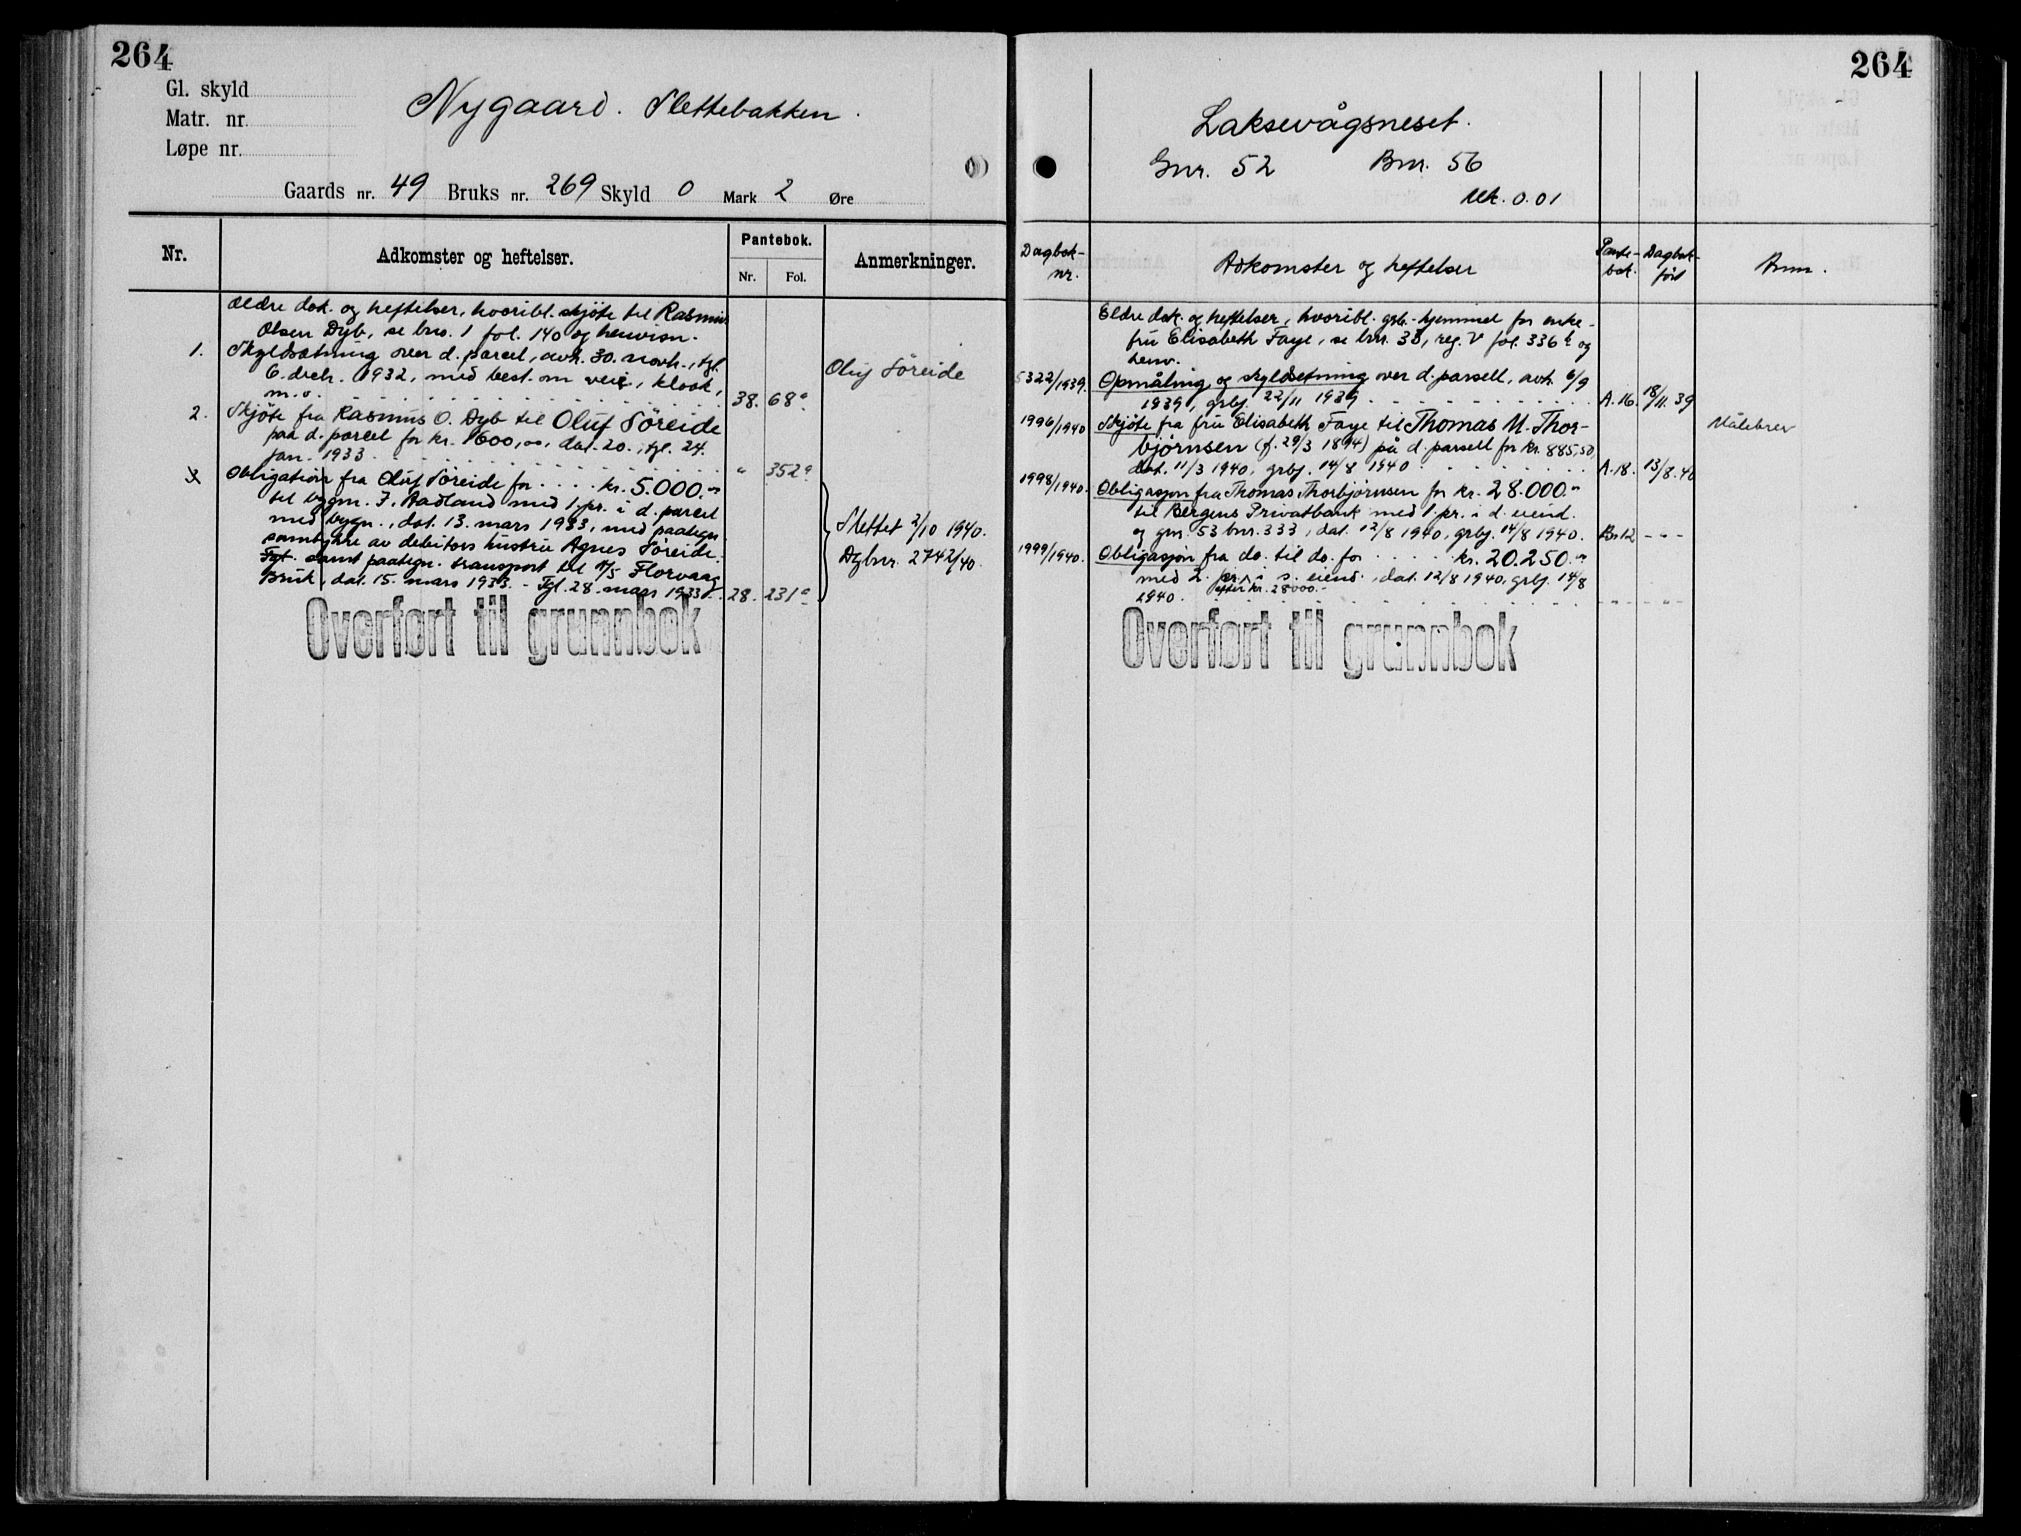 264
Gl. skyld
Matr. nr.
Løpe nr.
Nygaard. Slettebakken.
Gaards nr. 49 Bruks nr. 269 Skyld 0 Mark 2 Øre
Nr.
Adkomster og heftelser.
Pantebok.
Nr. Fol.
Anmerkninger.
Ældre dok. og heftelser, hvoribl. skjöte til Rasmus
Olsen Dyb, se bno. 1 fol. 140 og henvisn.
1. Skyldsætning over d. parcel, avh. 30. novb., tgl.
6. decb. 1932, med best. om veie, kloak,
m.v. 38. 68a
Oluf Söreide
2. Skjöte fra Rasmus O. Dyb til Oluf Söreide
paa d. parcel for kr. 1600,00, dat. 20., tgl. 24.
jan. 1933 " 352a
3. Obligation fra Oluf Söreide for kr. 5.000.-
til bygm. J. Aadland med 1. pr. i d. parcel
med bygn., dat. 13. mars 1933, med paategn.
samtykke av debitors hustru Agnes Söreide.
Tgl. samt paategn. transport til A/S Florvaag
Bruk, dat. 15. mars 1933. - Tgl. 28. mars 1933. 28. 231a
Slettet 2/10 1940.
Dgbnr. 2742/40.
Overført til grunnbok
264
Laksevågsneset.
Gnr. 52 Bnr. 56
Mk. 0.01
Dagbok-
nr.
Adkomster og heftelser
Pante-
bok.
Dagbok-
ført
Anm.
Eldre dok. og heftelser, hvoribl. grb.-hjemmel for enke-
fru Elisabeth Faye, se bnr. 38, reg. V fol. 336 b og
henv.
5322/1939. Opmåling og skyldsetning over d. parsell, avh. 6/9
1939, grbj. 22/11 1939 A.16. 18/11.39
1996/1940 Skjöte fra fru Elisabeth Faye til Thomas M. Thor-
björnsen (f. 29/3 1894) på d. parsell for kr. 885,50,
dat. 11/3 1940, grbj. 14/8 1940 A.18. 13/8.40
Målebrev
1998/1940. Obligasjon fra Thomas Thorbjörnsen for kr. 28.000.-
til Bergens Privatbank med 1 pr. i d. eiend.
og gnr. 53 bnr. 333, dat. 12/8 1940, grbj. 14/8 1940. B.12 - " -
1999/1940. Obligasjon fra do. til do. for kr. 20.250.-
med 2. pr. i s. eiend., dat. 12/8 1940, grbj. 14/8
efter kr. 28000.-
1940. - " - - " -
Overført til grunnbok